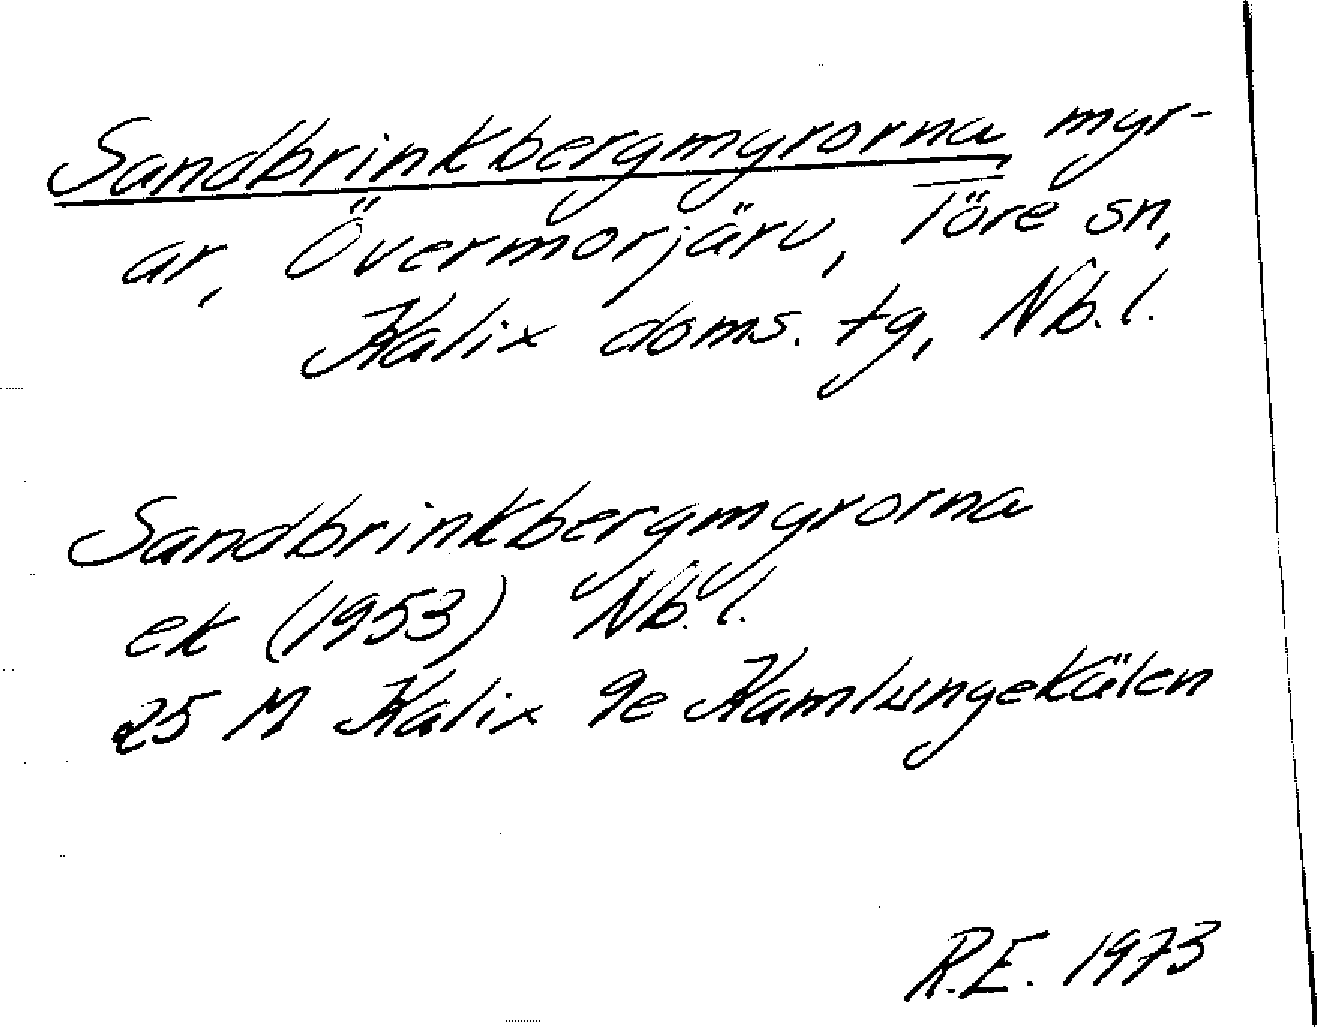 Sandbrinkbergmyrorna myr-
ar, Övermorjärv, Töre sn,
Kalix doms. tg, Nb. l.
Sandbrinkbergmyrorna
ek (1953) Nb. l.
25 M Kalix 9e Kamlungekälen
R.E. 1973